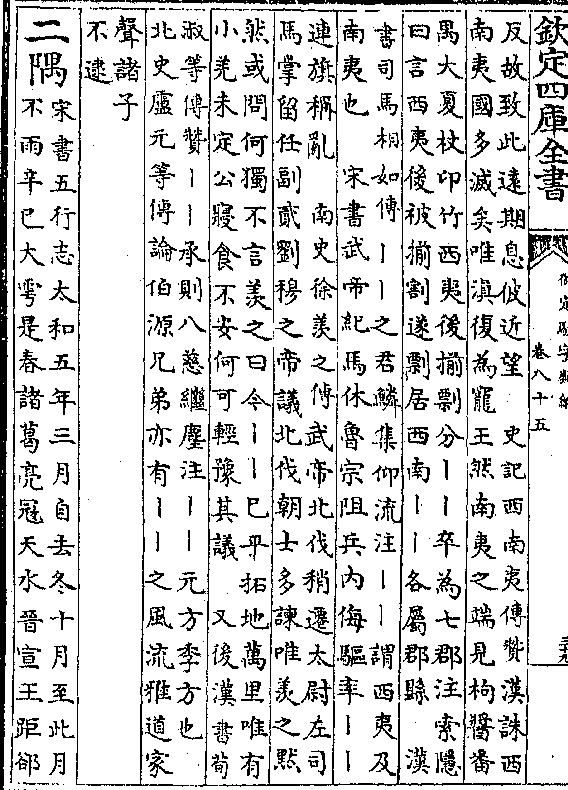 欽定四庫全書
御定駢字類編
卷八十五
反故致此遠期息彼近望 史記西南夷傳贊漢誅西
南夷國多滅矣唯滇復為寵王然南夷之端見枸醬番
禺大夏杖卭竹西夷後揃剽分丨丨卒為七郡注索隱
曰言西夷後被揃割遂剽居西南丨丨各屬郡縣 漢
書司馬相如傳丨丨之君鱗集仰流注丨丨謂西夷及
南夷也 宋書武帝紀馬休魯宗阻兵内侮驅率丨丨
連旗稱亂 南史徐羨之傳武帝北伐稍遷太尉左司
馬掌留任副貳劉穆之帝議北伐朝士多諫唯羨之黙
然或問何獨不言羨之曰今丨丨已平拓地萬里唯有
小羌未定公寢食不安何可輕豫其議 又後漢書荀
淑等傳贊丨丨承則八慈繼塵注丨丨元方季方也
北史盧元等傳論伯源兄弟亦有丨丨之風流雅道家
聲諸子
不逮
二隅 宋書五行志太和五年三月自去冬十月至此月
不雨辛巳大雩是春諸葛亮冦天水晉宣王距郤